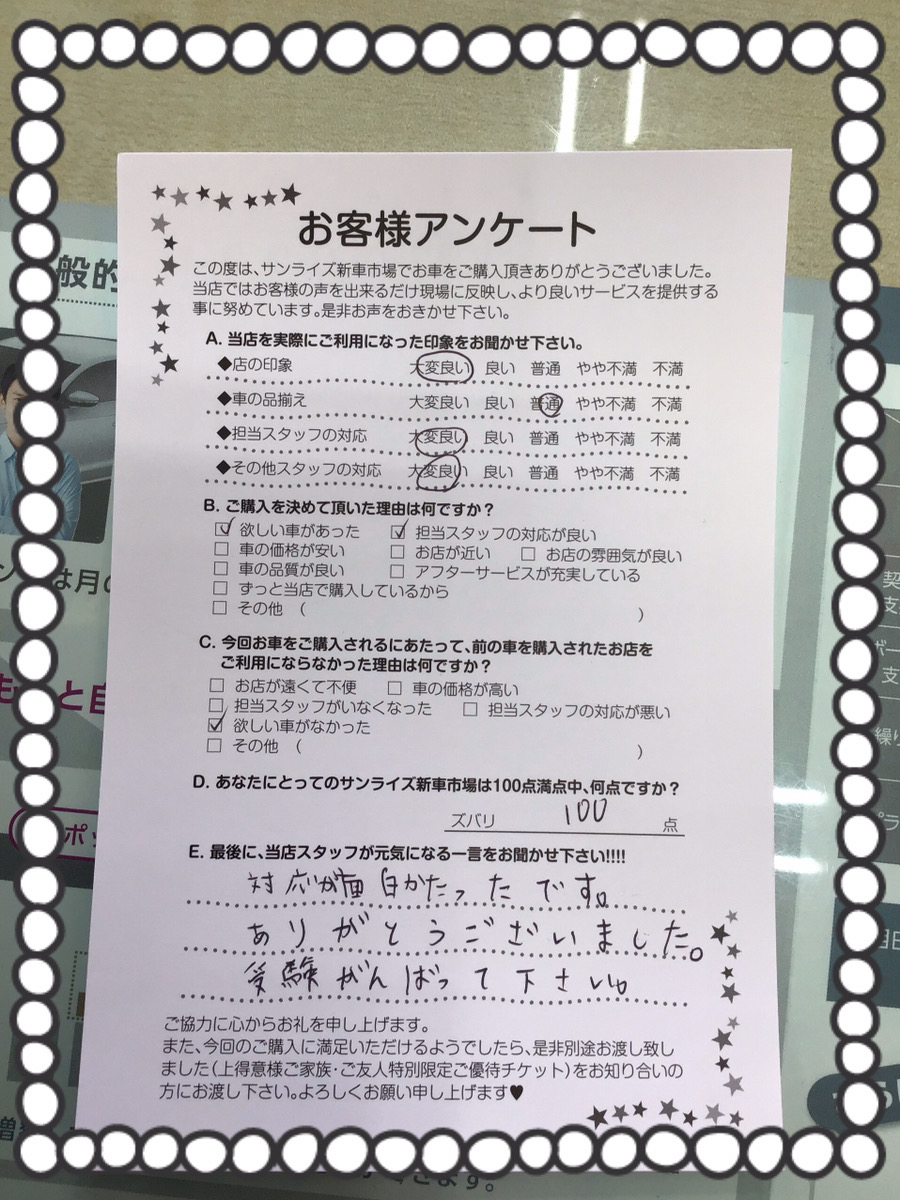 お客様アンケート
この度は、サンライズ新車市場でお車をご購入頂きありがとうございました。
当店ではお客様の声を出来るだけ現場に反映し、より良いサービスを提供する
事に努めています。是非お声をおきかせ下さい。
A. 当店を実際にご利用になった印象をお聞かせ下さい。
◆店の印象 大変良い 良い 普通 やや不満 不満
◆車の品揃え 大変良い 良い 普通 やや不満 不満
◆担当スタッフの対応 大変良い 良い 普通 やや不満 不満
◆その他スタッフの対応 大変良い 良い 普通 やや不満 不満
B. ご購入を決めて頂いた理由は何ですか？
☑ 欲しい車があった ☑ 担当スタッフの対応が良い
□ 車の価格が安い □ お店が近い □ お店の雰囲気が良い
□ 車の品質が良い □ アフターサービスが充実している
□ ずっと当店で購入しているから
□ その他 （ ）
C. 今回お車をご購入されるにあたって、前の車を購入されたお店を
ご利用にならなかった理由は何ですか？
□ お店が遠くて不便 □ 車の価格が高い
□ 担当スタッフがいなくなった □ 担当スタッフの対応が悪い
☑ 欲しい車がなかった
□ その他 （ ）
D. あなたにとってのサンライズ新車市場は100点満点中、何点ですか？
ズバリ 100 点
E. 最後に、当店スタッフが元気になる一言をお聞かせ下さい!!!!
対応が面白かたったです。
ありがとうございました。
受験がんばって下さい。
ご協力に心からお礼を申し上げます。
また、今回のご購入に満足いただけるようでしたら、是非別途お渡し致し
ました（上得意様ご家族・ご友人特別限定ご優待チケット）をお知り合いの
方にお渡し下さい。よろしくお願い申し上げます♥
般的
は月の
と自
ポッ